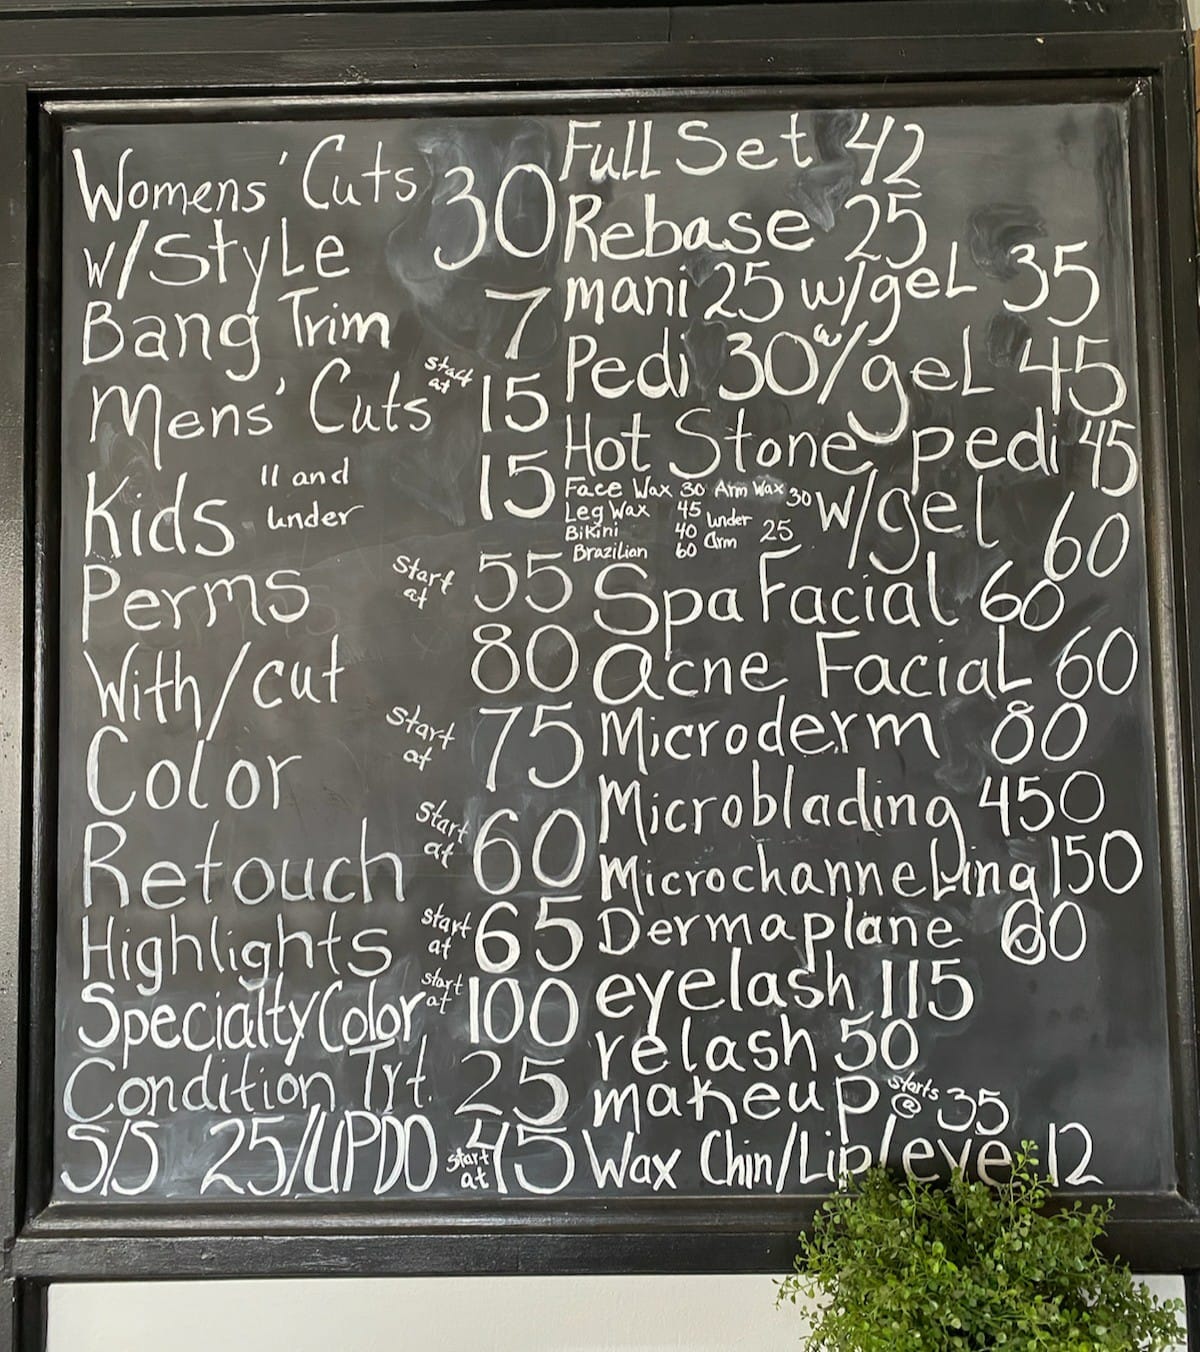 Womens' Cuts 30
w/Style
Bang Trim 7
Mens' Cuts start at 15
Kids 11 and under 15
Perms start at 55
With/cut 80
Color start at 75
Retouch start at 60
Highlights start at 65
Specialty Color start at 100
Condition Trt. 25
S/S 25/UPDO start at 45
Full Set 42
Rebase 25
mani 25 w/gel 35
Pedi 30 w/gel 45
Hot Stone pedi 45
w/gel 60
Face Wax 30 Arm Wax 30
Leg Wax 45 under arm 25
Bikini 40
Brazilian 60
Spa Facial 60
Acne Facial 60
Microderm 80
Microblading 450
Microchanneling 150
Dermaplane 60
eyelash 115
relash 50
makeup starts @ 35
Wax Chin/Lip/eye 12